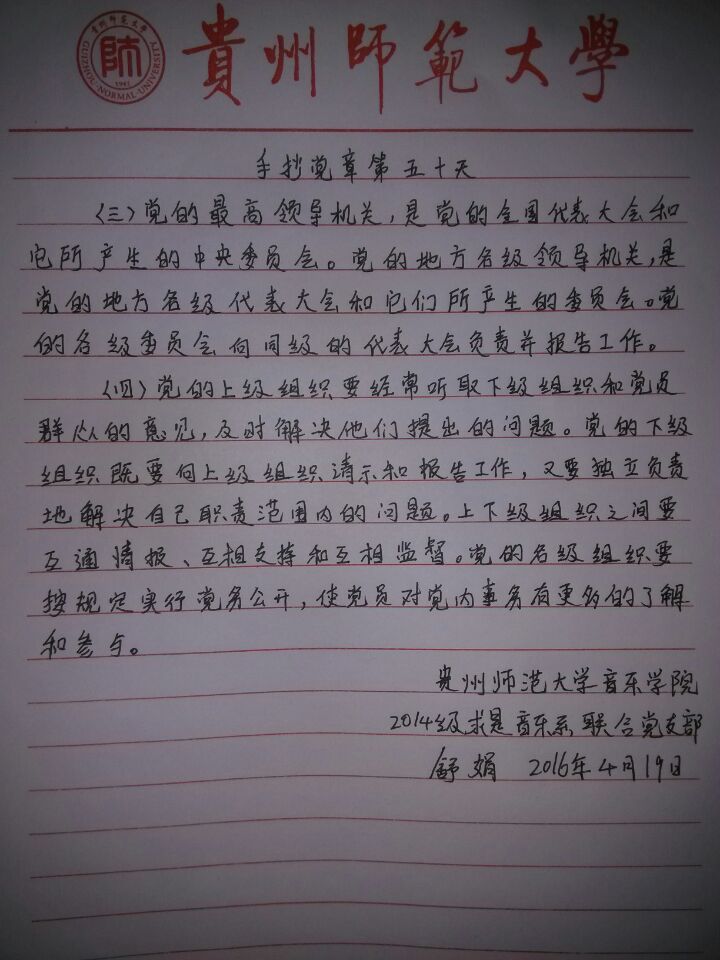 貴州師範大學
貴州師範大學
GUIZHOU·NORMAL·UNIVERSITY
1941
手抄党章第五十天
(三)党的最高领导机关,是党的全国代表大会和
它所产生的中央委员会。党的地方各级领导机关,是
党的地方各级代表大会和它们所产生的委员会。党
的各级委员会向同级的代表大会负责并报告工作。
(四)党的上级组织要经常听取下级组织和党员
群众的意见,及时解决他们提出的问题。党的下级
组织既要向上级组织请示和报告工作,又要独立负责
地解决自己职责范围内的问题。上下级组织之间要
互通情报、互相支持和互相监督。党的各级组织要
按规定实行党务公开,使党员对党内事务有更多的了解
和参与。
贵州师范大学音乐学院
2014级求是音乐系联合党支部
舒娟 2016年4月19日